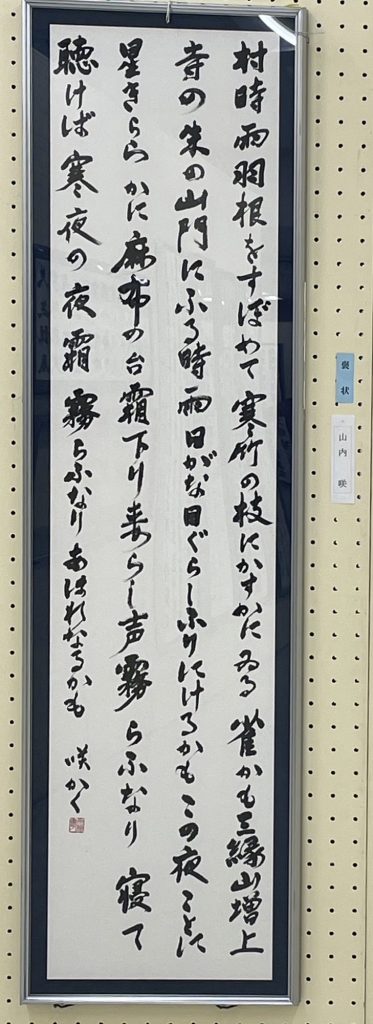 村時雨羽根をすぼめて寒竹の枝にかすかにゐる雀かも三縁山増上
寺の朱の山門にふる時雨日がな日ぐらしふりにけるかもこの夜ことに
星きららかに麻布の台霜下り来らし声霧らふなり 寝て
聴けば寒夜の夜霜霧らふなりあはれなるかも 咲かく
褒状
山内 咲